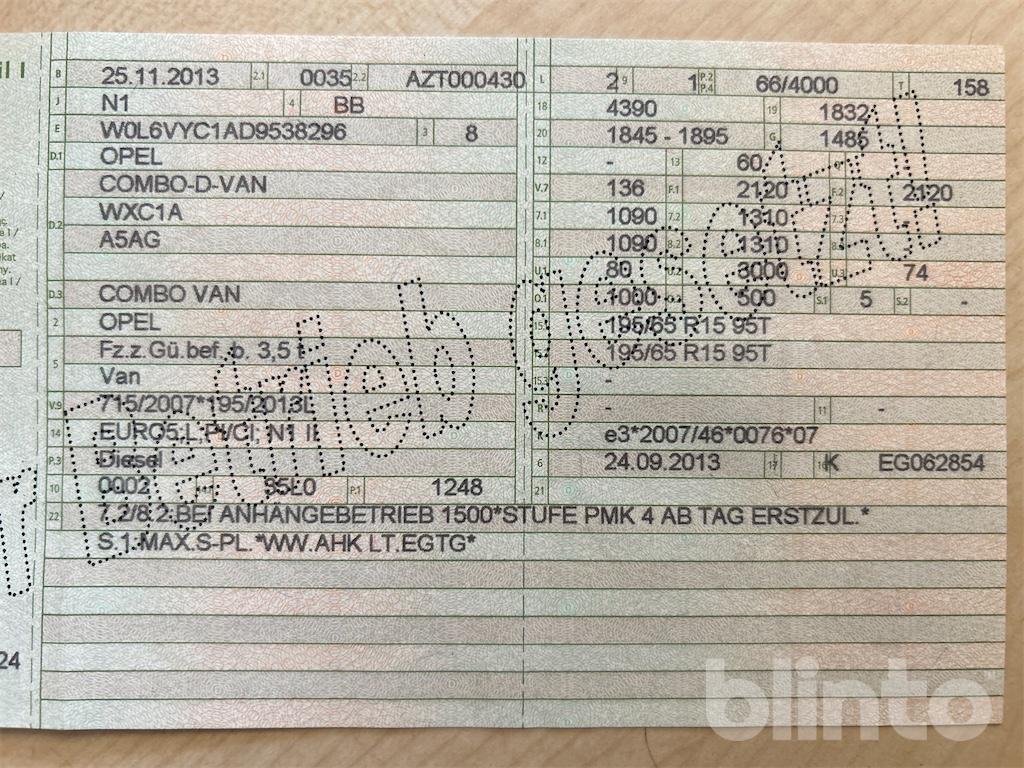 il I
B 25.11.2013 2.1 0035 2.2 AZT000430
J N1 4 BB
E W0L6VYC1AD9538296 3 8
D.1 OPEL
COMBO-D-VAN
D.2 WXC1A
A5AG
D.3 COMBO VAN
2 OPEL
5 Fz.z.Gü.bef. b. 3,5 t
Van
V.9 715/2007*195/2013L
14 EURO5;L;PI/CI; N1 II
P.3 Diesel
10 0002 35L0 P.1 1248
22 7.2/8.2:BEI ANHÄNGEBETRIEB 1500*STUFE PMK 4 AB TAG ERSTZUL.*
S.1:MAX.S-PL.*WW.AHK LT.EGTG*
L 2 9 1 P.2 P.4 66/4000 T 158
18 4390 19 1832
20 1845 - 1895 G 1485
12 - 13 60
V.7 136 F.1 2120 F.2 2120
7.1 1090 7.2 1310 7.3 -
8.1 1090 8.2 1310
U.1 80 U.2 3000 U.3 74
O.1 1000 500 S.1 5 S.2 -
195/65 R15 95T
195/65 R15 95T
15.3 -
R - 11 -
K e3*2007/46*0076*07
6 24.09.2013 17 16 K EG062854
21
Betrieb gesetzt
24
blinto